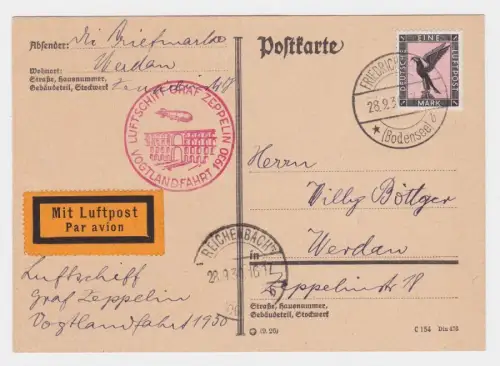 Absender: die Briefmarke
Wohnort: Werdau
Straße, Hausnummer,
Gebäudeteil, Stockwerk
Postkarte
DEUTSCHE
EINE
LUFTPOST
MARK
FRIEDRICH
28.9.3
(Bodensee) b
LUFTSCHIFF GRAF ZEPPELIN
VOGTLANDFAHRT 1930
Mit Luftpost
Par avion
REICHENBACH
28.9.30 16-17
b
Herrn
Willy Böttger
in Werdau
Zeppelinstr 18
Luftschiff
Graf Zeppelin
Vogtlandfahrt 1930
Straße, Hausnummer,
Gebäudeteil, Stockwerk
C 154 Din 476